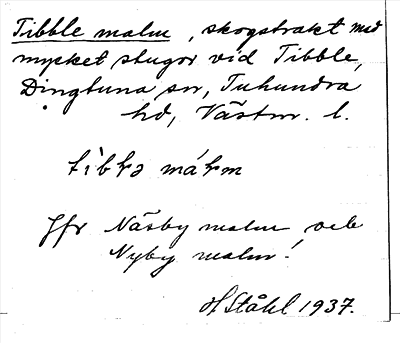 Tibble malm, skogstrakt med
mycket stugor vid Tibble,
Dingtuna sn, Tuhundra
hd, Västm. l.
tìbɫə máɫm
Jfr Näsby malm och
Nyby malm!
H Ståhl 1937.